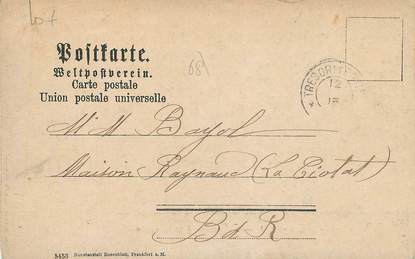 Postkarte.
Weltpostverein.
Carte postale
Union postale universelle
68
12
M. M. Bayol
Maison Raynaud (La Ciotat)
B d R
8453 Kunstanstalt Rosenblatt, Frankfurt a. M.